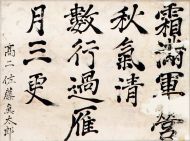 霜滿軍營
秋氣清
數行過雁
月三更
高二 佐藤太郎